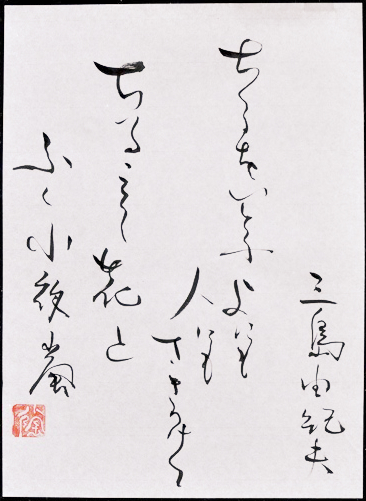 三島由紀夫
ちるをいとふよにも
人にも
さきかけて
ちるこそ花と
ふく小夜嵐